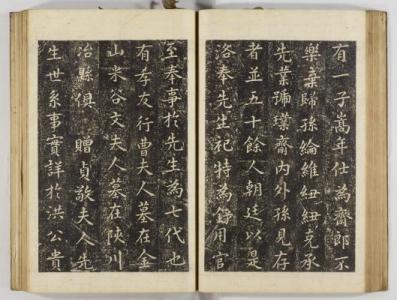 有一子嵩年仕為齋郎不
樂棄歸孫綸維紐紐克承
先業號璞齋內外孫見存
者並五十餘人朝廷以是
洛奉先生祀特為錄用官
至奉事於先生為七代也
有孝友行曹夫人墓在金
山米谷文夫人墓在陝川
治縣俱贈貞敬夫人先
生世系事實詳於洪公貴